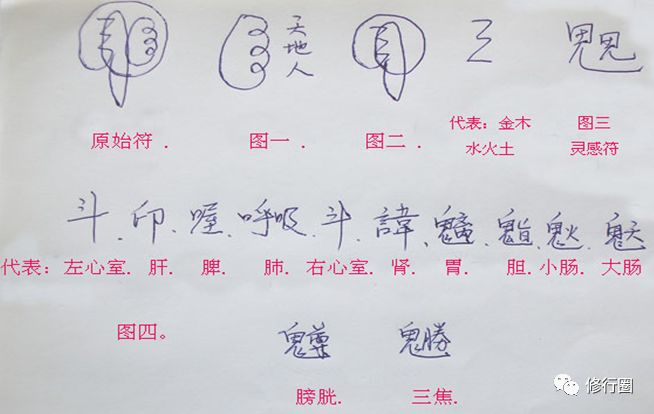 天
地
人
原始符．
图一．
图二．
代表：金木
水火土
图三
灵感符
斗．印．喔．呼吸．斗．諱、
代表：左心室．肝．脾．肺．右心室．肾．胃．胆．小肠．大肠
图四。
膀胱．
三焦．
修行圈